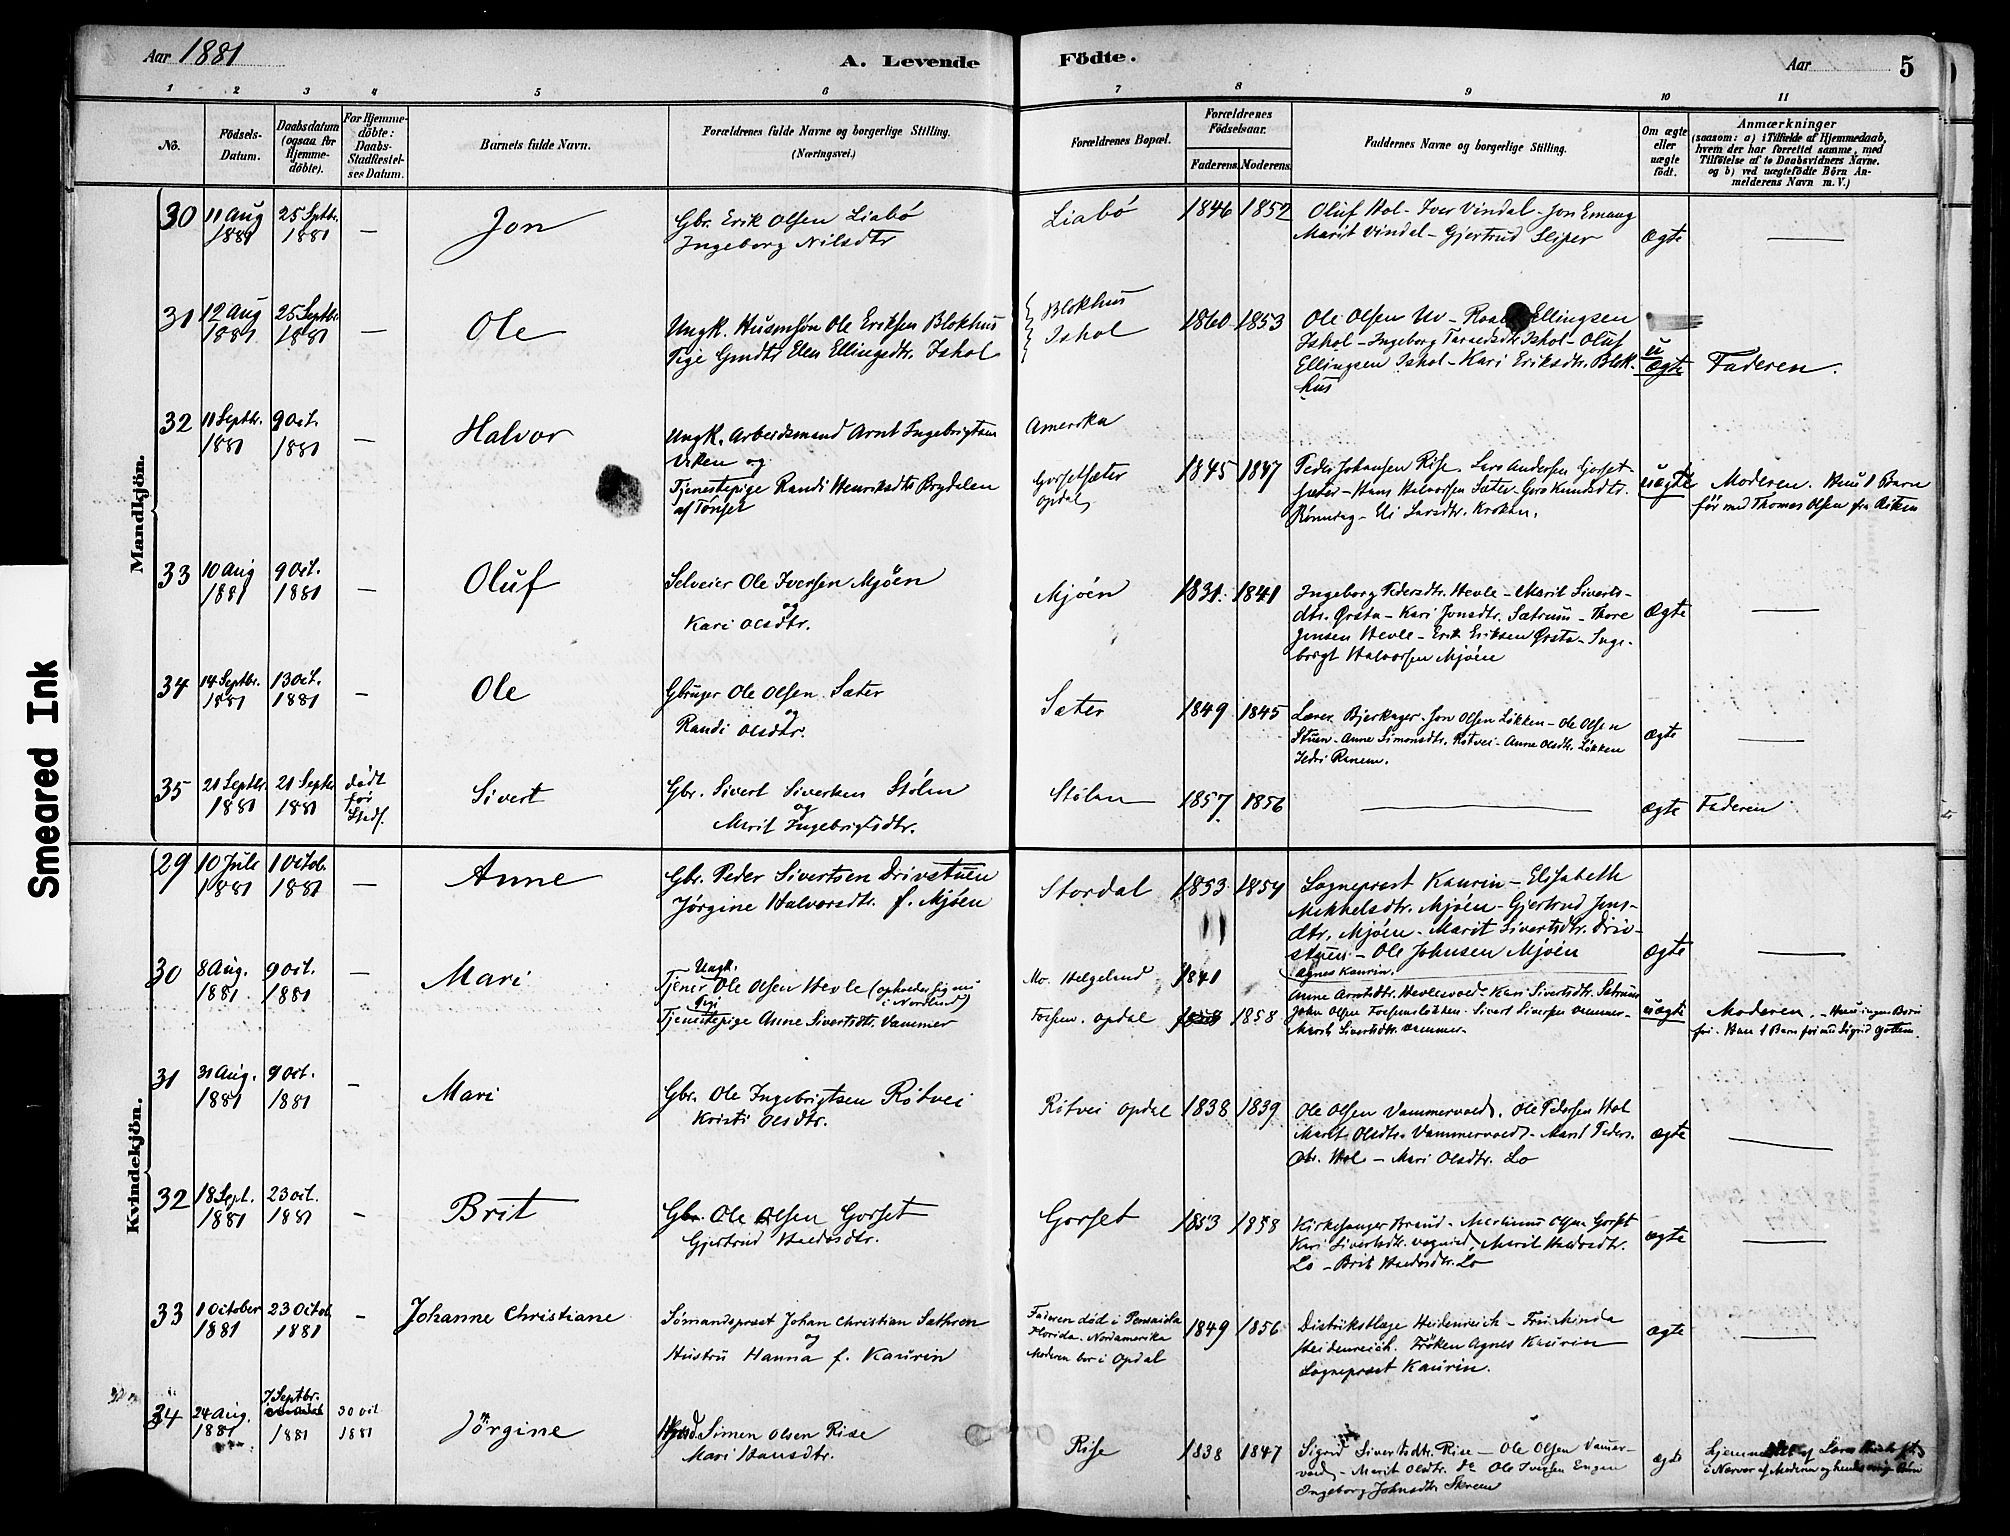 Aar 1881
A. Levende
Födte.
Aar
5
1 2 3 4 5 6 7 8 9 10 11
No.
Födsels-
Datum.
Daabsdatum
(ogsaa for
Hjemme-
döbte).
For Hjemme-
döbte:
Daabs-
Stadfæstel-
ses Datum.
Barnets fulde Navn.
Forældrenes fulde Navne og borgerlige Stilling.
(Næringsvei.)
Forældrenes Bopæl.
Forældrenes
Födselsaar.
Faderens. Moderens.
Faddernes Navne og borgerlige Stilling.
Om ægte
eller
uægte
födt.
Anmærkninger
(saasom: a) i Tilfælde af Hjemmedaab,
hvem der har forrettet samme, med
Tilföielse af to Daabsvidners Navne.
og b) ved uægtefödte Börn An-
melderens Navn m. V.)
Smeared Ink
Mandkjön.
30
11 Aug
1881
25 Septbr.
1881
—
Jon
Gbr. Erik Olsen Liabö
Ingeborg Nilsdtr
Liabö
1846 1852
Oluf Hol - Iver Vindal - Jon Emaug
Marit Vindal - Gjertrud Sliper
Ægte
—
31
12 Aug
1881
25 Septbr.
1881
—
Ole
Ungk. Husmsön Ole Eriksen Blokhus
Pige Gmdtr Elen Ellingsdtr. Ishol
Blokhus
Ishol
1860 1853
Ole Olsen Uv - Ellingsen
Ishol - Ingeborg Ishol - Oluf
Ellingsen Ishol - Kari Eriksdtr. Blok-
hus
u
ægte
Faderen.
32
11 Septbr.
1881
9 Oct.
1881
—
Halvor
Ungk. Arbeidsmand Arnt Ingebrigtsen
Viken og
Tjenestepige Randi Henriksdtr Brydalen
af Tönset
Amerika
Gorsetsæter
Opdal
1845 1847
Peder Johansen Rise, Lars Andersen Gorset-
sæter - Hans Halvorsen Sæter - Guro Knudsdtr.
- Eli Larsdtr. Krokan.
uægte
Moderen. Hun 1 Barn
för med Thomas Olsen fra
33
10 Aug
1881
9 Oct.
1881
—
Oluf
Selveier Ole Iversen Mjöen
og
Kari Olsdtr.
Mjöen
1831. 1841
Ingeborg Pedersdtr. Hevle - Marit Siverts-
dtr. Ørsta - Kari Jonsdtr. Sætrum - Thore
Jensen Hevle - Erik Eriksen Ørsta - Inge-
brigt Halvorsen Mjöen
Ægte
—
34
14 Septbr.
1881
13 Oct.
1881
—
Ole
Gbruger Ole Olsen Sæter
og
Randi Olsdtr.
Sæter
1849 1845
Lærer Bjerkager - Jon Olsen Lökken - Ole Olsen
Stuen - Anne Simonsdtr. Rötvei - Anne Olsdtr. Lökken
Ranem.
ægte
—
35
21 Septbr.
1881
21 Septbr
1881
Dödt
för
Stadf.
Sivert
Gbr. Sivert Sivertsen Stölen
og
Marit Ingebrigtsdtr.
Stölen
1857. 1856
—
ægte
Faderen
Kvindekjön.
29
10 Juli
1881
1 Octob.
1881
—
Anne
Gbr. Peder Sivertsen Drivstuen
Jörgine Halvorsdtr. f. Mjöen
Stordal
1853 1854
Sogneprest Kaurin - Elisabeth
Mikkelsdtr. Mjöen - Gjertrud Jons-
dtr. Mjöen - Marit Sivertsdtr. Driv-
stuen - Ole Johnsen Mjöen
Agnes Kaurin.
ægte
—
30
8 Aug.
1881
9 Oct.
1881
—
Mari
Ungk.
Tjener Ole Olsen Hevle (opholder sig nu
i Nordland)
Pige
Tjenestepige Anne Sivertsdtr. Vammer
Mo. Helgeland
Opdal
1841
1858
Anne Arntsdtr. Hevlesvold - Kari Sivertsdtr. Sætrum
John Olsen - Sivert Sivertsen Vammer -
Marit Sivertsdtr. Vammer -
uægte
Moderen. - Hun ingen Barn
för. Han 1 Barn för med Sigrid
31
31 Aug.
1881
9 Oct.
1881
—
Mari
Gbr. Ole Ingebrigtsen Rötvei
Kristi Olsdtr.
Rötvei Opdal
1838 1839
Ole Olsen Vammervold, Ole Pedersen Hol
Marit Olsdtr. Vammervold - Marit Peders.
dtr. Hol - Mari Olsdtr. Lo
ægte
—
32
18 Sept.
1881
23 Oct.
1881
—
Brit
Gbr Ole Olsen Gorset
Gjertrud Haldosdtr.
Gorset
1853 1858
Kirkesanger Brand - Martinus Olsen Gorset
Kari Sivertsdtr. , Marit Haldosdtr.
Lo - Brit Haldosdtr. Lo
ægte
—
33
1 October
1881
23 Octob.
1881
—
Johanne Christiane
Sömandsprest Johan Christian Sathren
og
Hustru Hanna f. Kaurin
Faderen död i Pensacola
Florida. Nordamerika
Moderen bor i Opdal
1849 1856
Distriktslæge Heidenreich - Fru Minda
Heidenreich. Fröken Agnes Kaurin
Sogneprest Kaurin.
ægte
—
34
24 Aug.
1881
7 Septbr.
1881
30 Oct
1881
Jörgine
Simen Olsen Rise
Mari Hansdtr.
Rise
1838 1847
Sigrid Sivertsdtr. Rise - Ole Olsen Vamer-
vold - Marit Olsdtr. do Ole Iversen Engen
Ingeborg Johnsdtr Skrem
ægte
Hjemmedöbt af Lars
i Nærvær af Moderen og